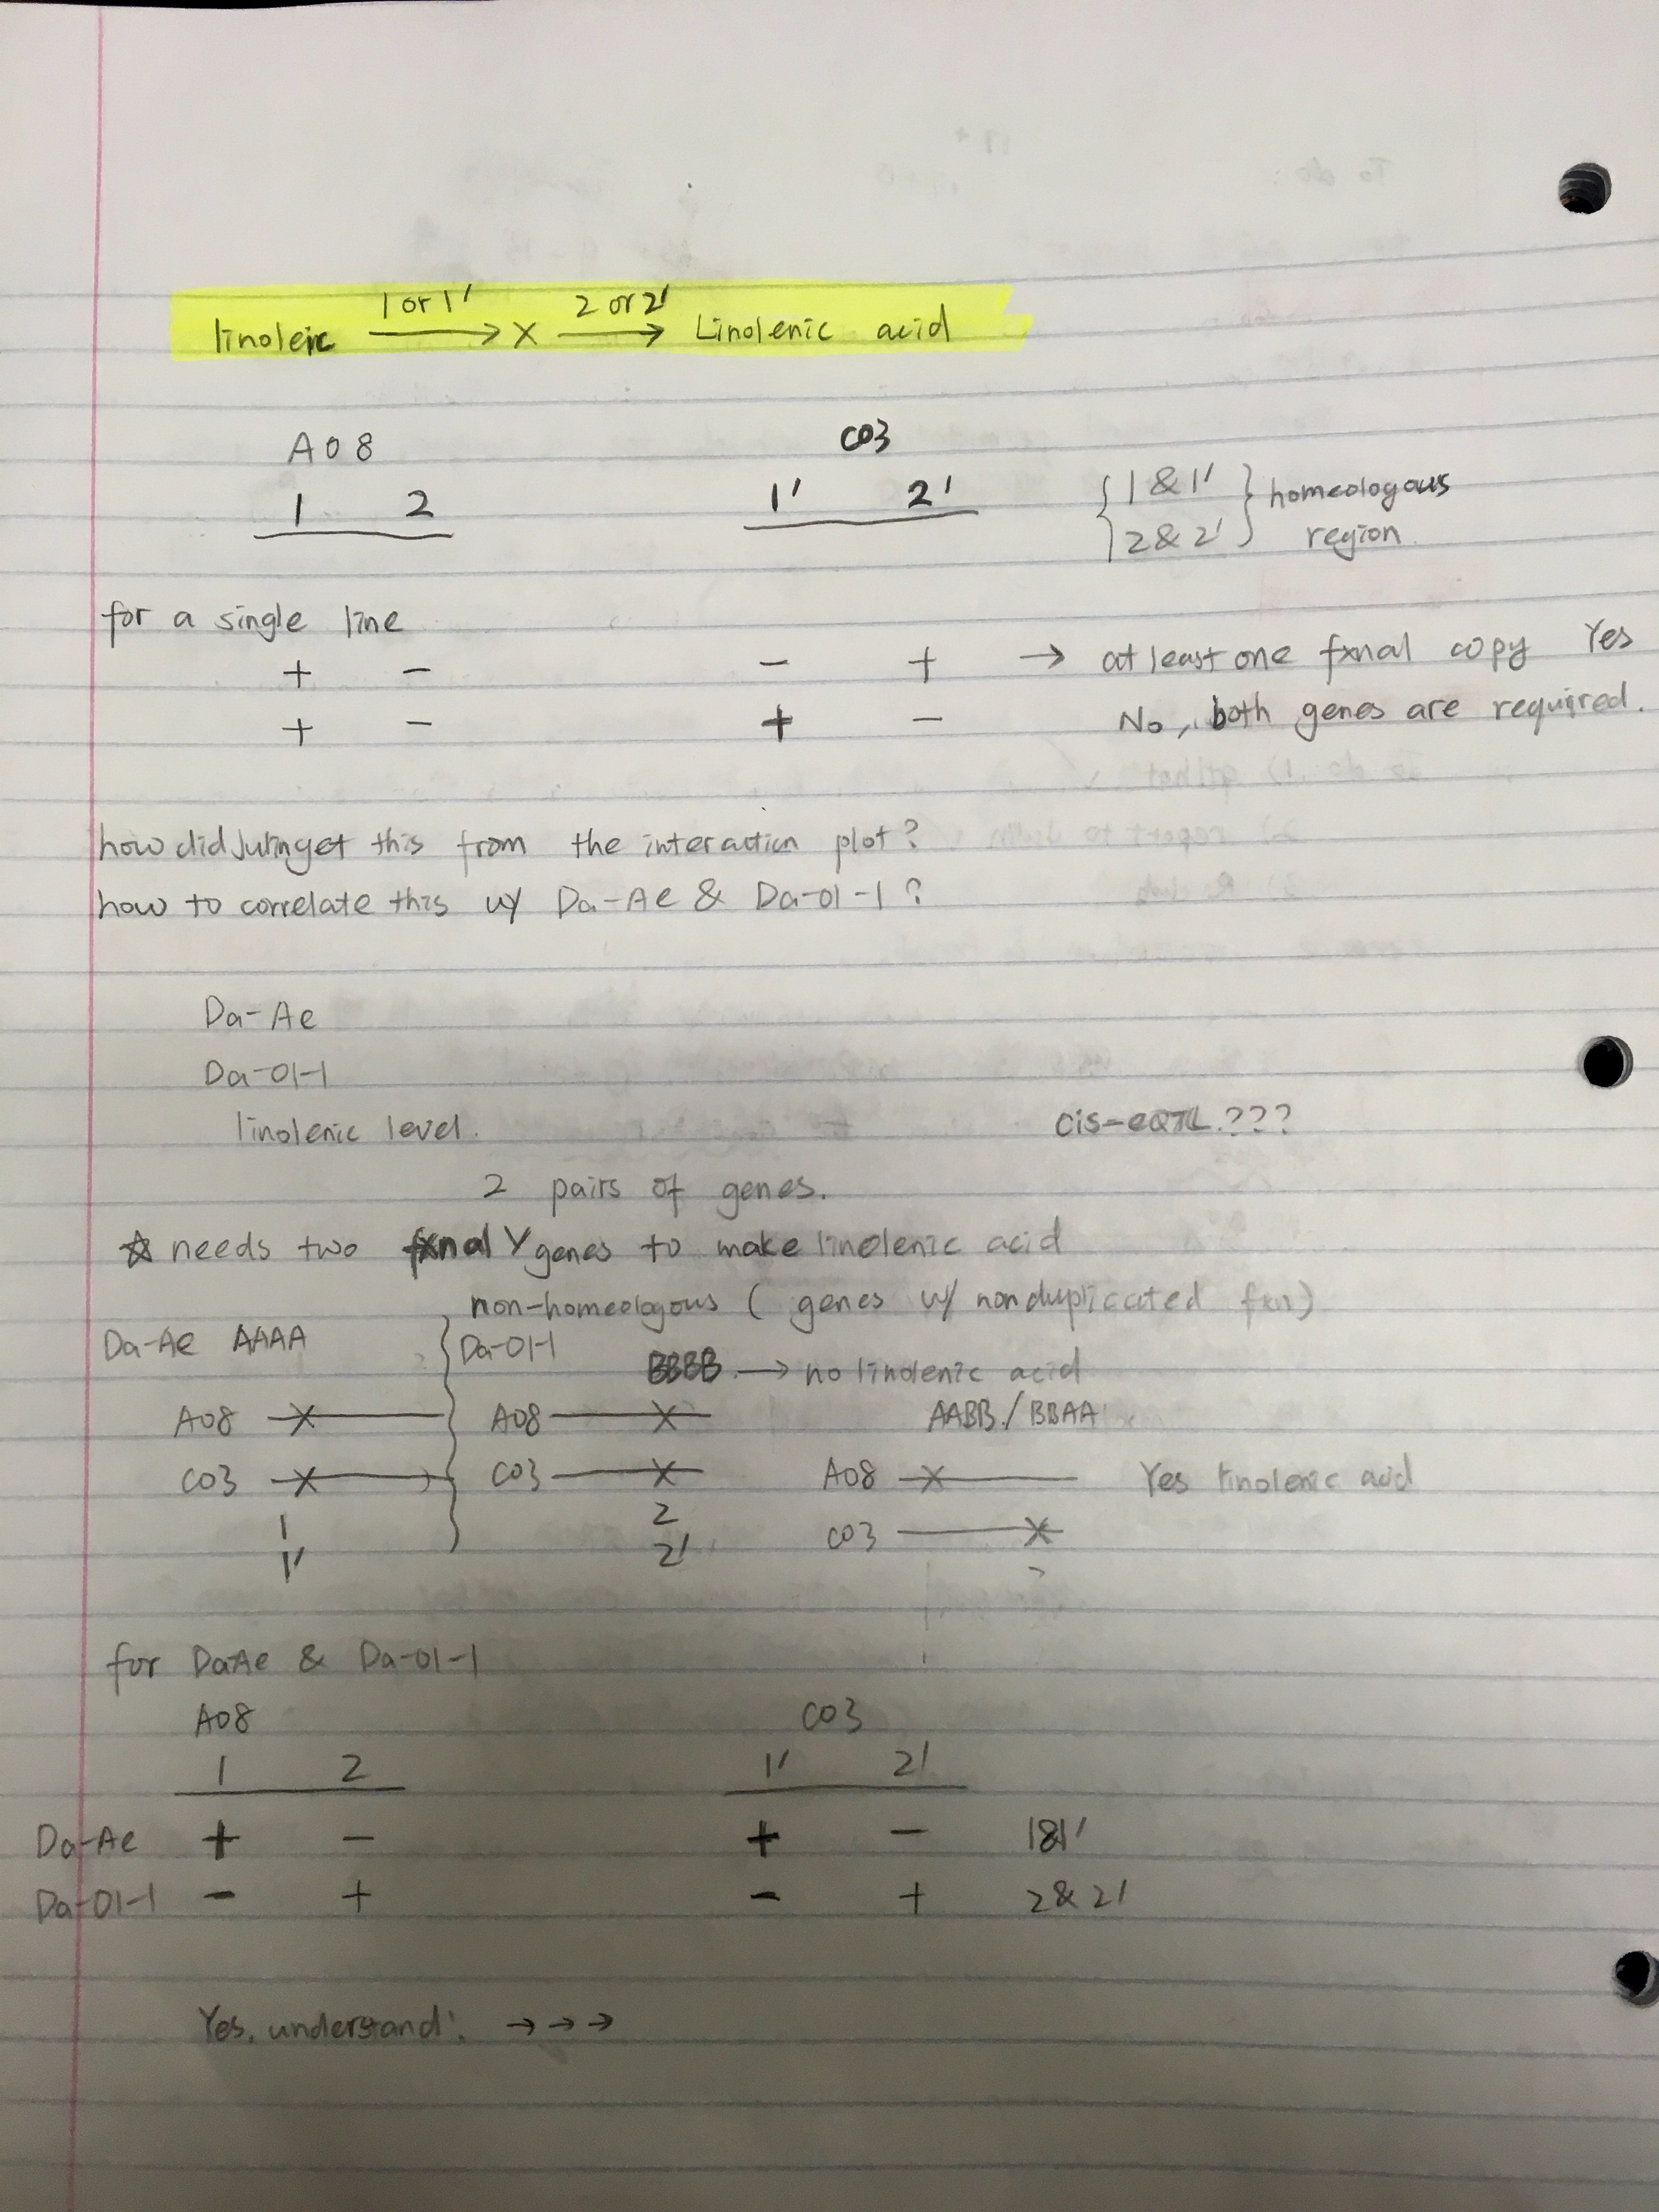 linoleic 1 or 1' → X 2 or 2' → Linolenic acid
A08 C03
1 2 1' 2' { 1 & 1' } homeologous
2 & 2' region
for a single line
+ - - + → at least one fxnal copy Yes
+ - + - No, both genes are required.
how did Julin get this from the interaction plot?
how to correlate this w/ Da-Ae & Da-Ol-1?
Da-Ae
Da-Ol-1
linolenic level. cis-eQTL.???
2 pairs of genes.
☆ needs two fxnal genes to make linolenic acid
non-homeologous ( genes w/ nonduplicated fxn)
Da-Ae AAAA Da-Ol-1 BBBB → no linolenic acid
A08 X A08 X AABB / BBAA
C03 X C03 X A08 X Yes linolenic acid
1 2 C03 X
1' 2'
for DaAe & Da-Ol-1
A08 C03
1 2 1' 2'
Da-Ae + - + - 1&1'
Da-Ol-1 - + - + 2&2'
Yes, understand! → → →